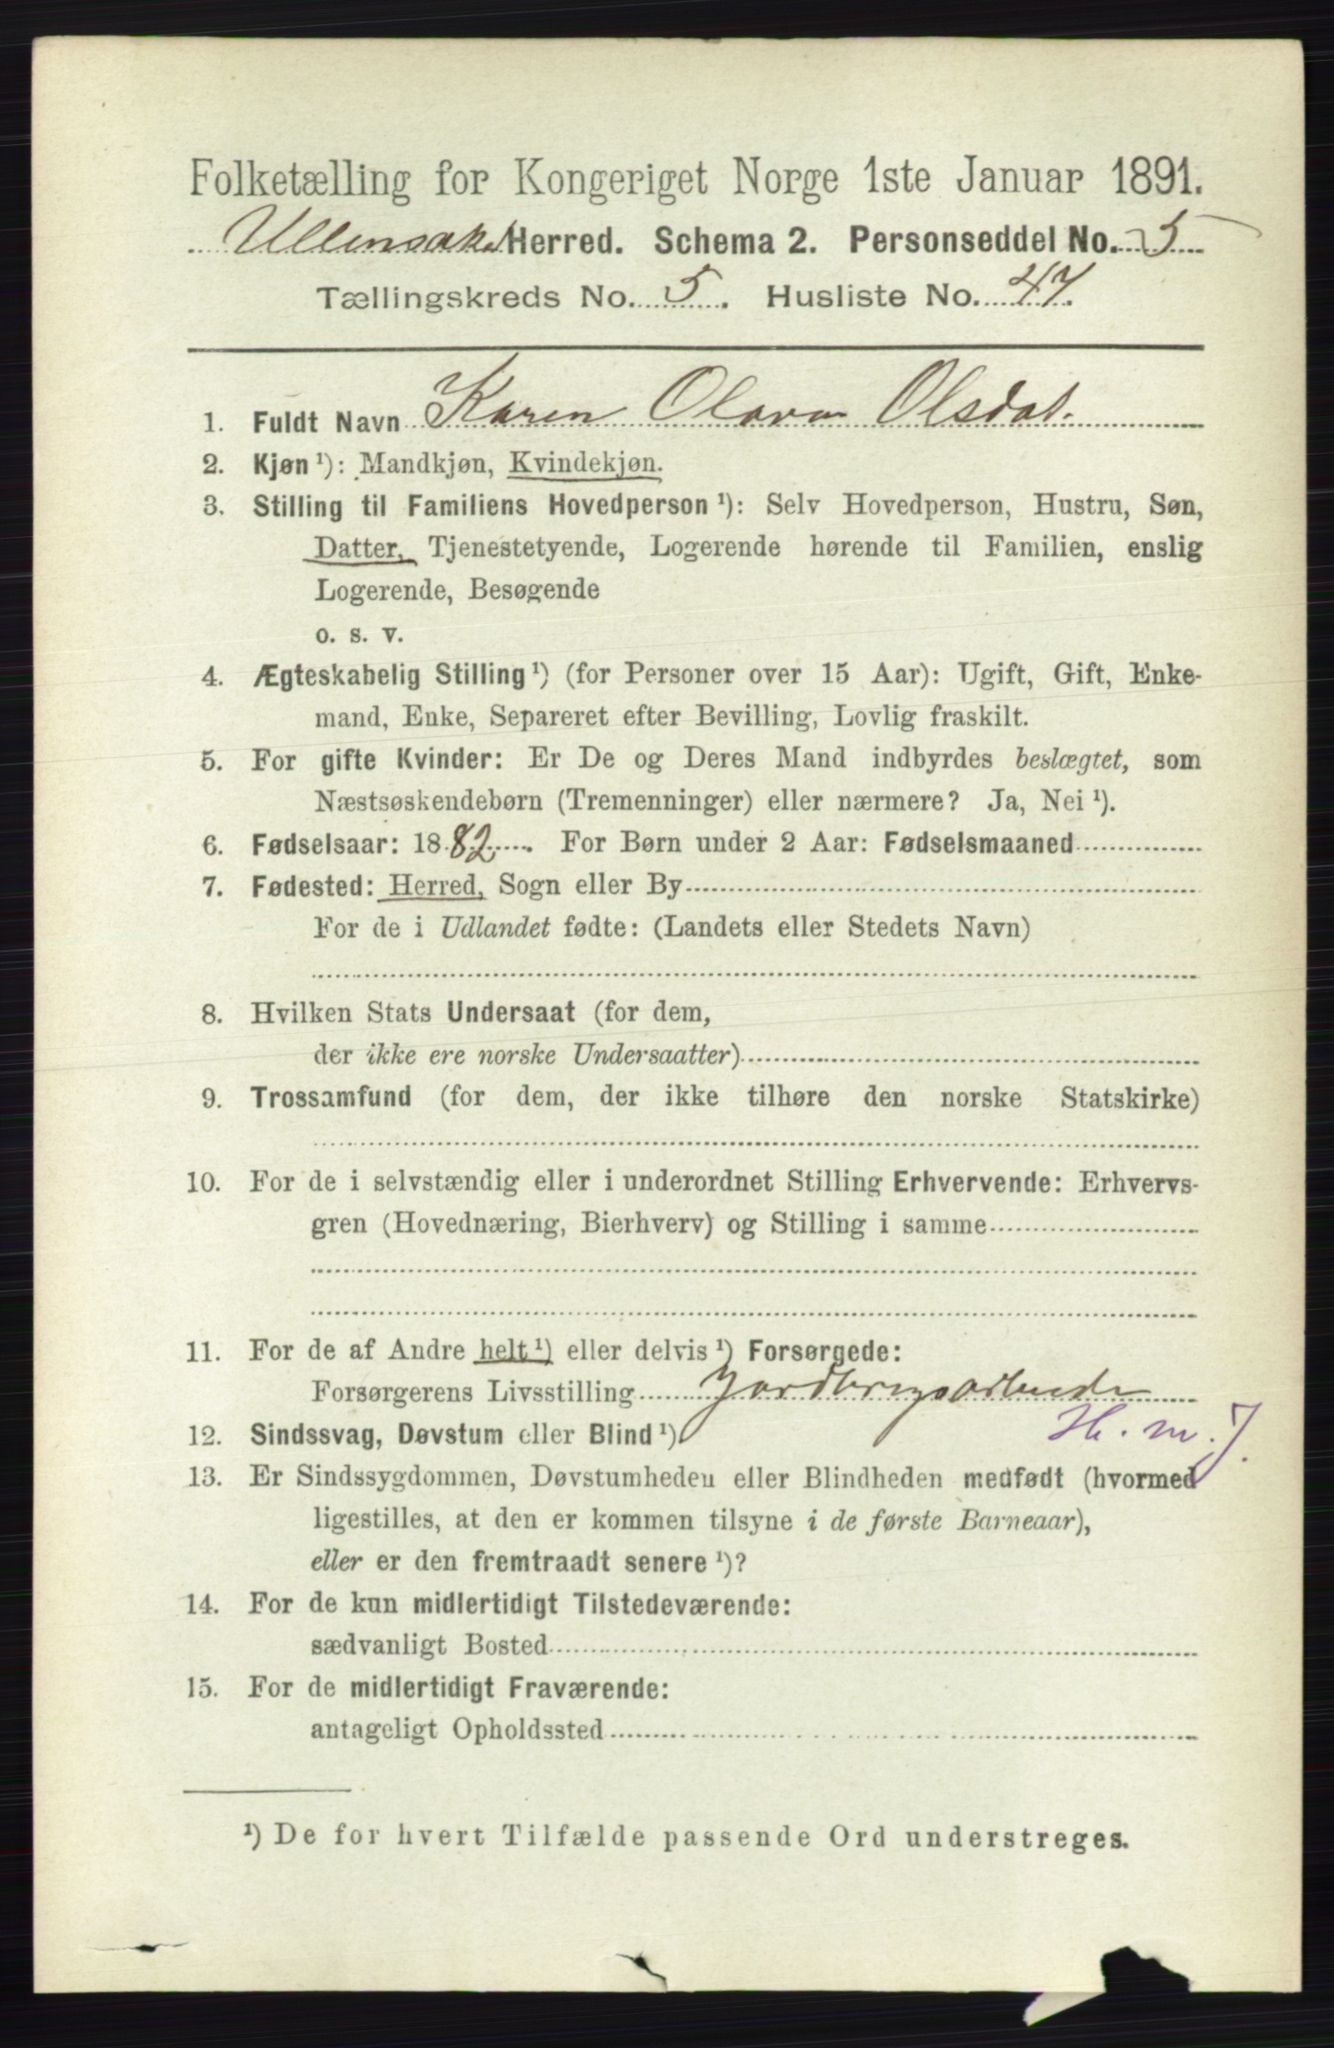 Folketælling for Kongeriget Norge 1ste Januar 1891.
Ullensaker Herred. Schema 2. Personseddel No. 5
Tællingskreds No. 5. Husliste No. 47.
1. Fuldt Navn Karen Olava Olsdat.
2. Kjøn ¹): Mandkjøn, Kvindekjøn.
3. Stilling til Familiens Hovedperson ¹): Selv Hovedperson, Hustru, Søn,
Datter, Tjenestetyende, Logerende hørende til Familien, enslig
Logerende, Besøgende
o. s. v.
4. Ægteskabelig Stilling ¹) (for Personer over 15 Aar): Ugift, Gift, Enke-
mand, Enke, Separeret efter Bevilling, Lovlig fraskilt.
5. For gifte Kvinder: Er De og Deres Mand indbyrdes beslægtet, som
Næstsøskendebørn (Tremenninger) eller nærmere? Ja, Nei ¹).
6. Fødselsaar: 1882. For Børn under 2 Aar: Fødselsmaaned
7. Fødested: Herred, Sogn eller By
For de i Udlandet fødte: (Landets eller Stedets Navn)
8. Hvilken Stats Undersaat (for dem,
der ikke ere norske Undersaatter)
9. Trossamfund (for dem, der ikke tilhøre den norske Statskirke)
10. For de i selvstændig eller i underordnet Stilling Erhvervende: Erhvervs-
gren (Hovednæring, Bierhverv) og Stilling i samme
11. For de af Andre helt ¹) eller delvis ¹) Forsørgede:
Forsørgerens Livsstilling Jordbrugsarbeide
H. m. J.
12. Sindssvag, Døvstum eller Blind ¹)
13. Er Sindssygdommen, Døvstumheden eller Blindheden medfødt (hvormed
ligestilles, at den er kommen tilsyne i de første Barneaar),
eller er den fremtraadt senere ¹)?
14. For de kun midlertidigt Tilstedeværende:
sædvanligt Bosted
15. For de midlertidigt Fraværende:
antageligt Opholdssted
¹) De for hvert Tilfælde passende Ord understreges.